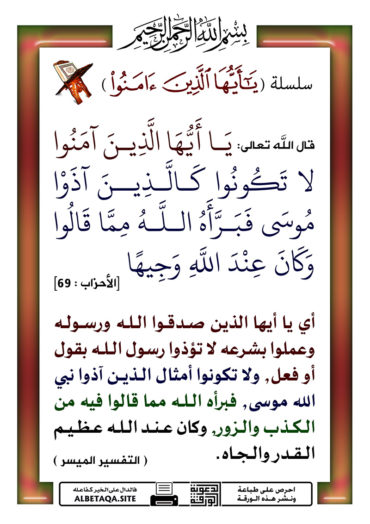 بسم الله الرحمن الرحيم
سلسلة ( يَـٰٓأَيُّهَا ٱلَّذِينَ ءَامَنُوا۟ )
قال الله تعالى: يَـا أَيُّهَا الَّذِيـنَ آمَنُوا
لا تَكُونُوا كَـالَّـذِيـنَ آذَوْا
مُوسَى فَبَـرَّأَهُ الـلَّـهُ مِمَّا قَالُوا
وَكَانَ عِنْدَ اللَّهِ وَجِيهًا [الأحزاب : 69]
أي يا أيها الذين صدقوا الله ورسوله
وعملوا بشرعه لا تؤذوا رسول الله بقول
أو فعل, ولا تكونوا أمثال الذين آذوا نبي
الله موسى, فبرأه الله مما قالوا فيه من
الكذب والزور, وكان عند الله عظيم
القدر والجاه.
( التفسير الميسر )
احرص على طباعة
ونشر هذه الورقة
الدعوية
الورقة
فالدال على الخير كفاعله
ALBETAQA.SITE